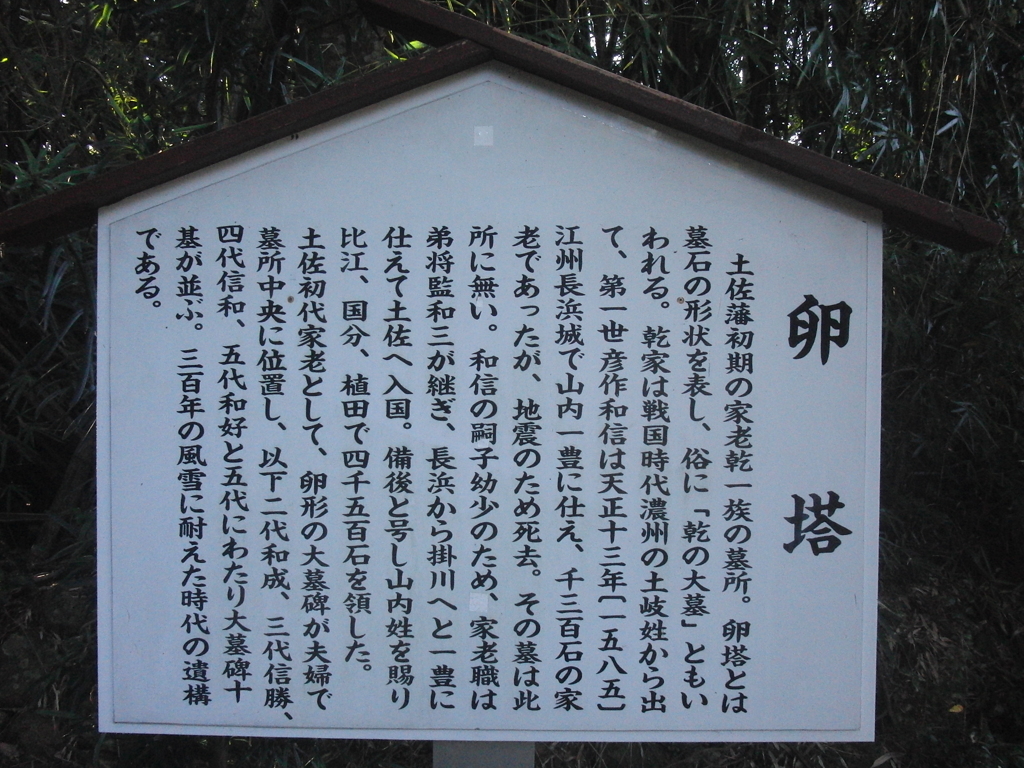 卵塔
土佐藩初期の家老乾一族の墓所。卵塔とは
墓石の形状を表し、俗に「乾の大墓」ともい
われる。乾家は戦国時代濃州の土岐姓から出
て、第一世彦作和信は天正十三年〔一五八五〕
江州長浜城で山内一豊に仕え、千三百石の家
老であったが、地震のため死去。その墓は此
所に無い。和信の嗣子幼少のため、家老職は
弟将監和三が継ぎ、長浜から掛川へと一豊に
仕えて土佐へ入国。備後と号し山内姓を賜り
比江、国分、植田で四千五百石を領した。
土佐初代家老として、卵形の大墓碑が夫婦で
墓所中央に位置し、以下二代和成、三代信勝、
四代信和、五代和好と五代にわたり大墓碑十
基が並ぶ。三百年の風雪に耐えた時代の遺構
である。